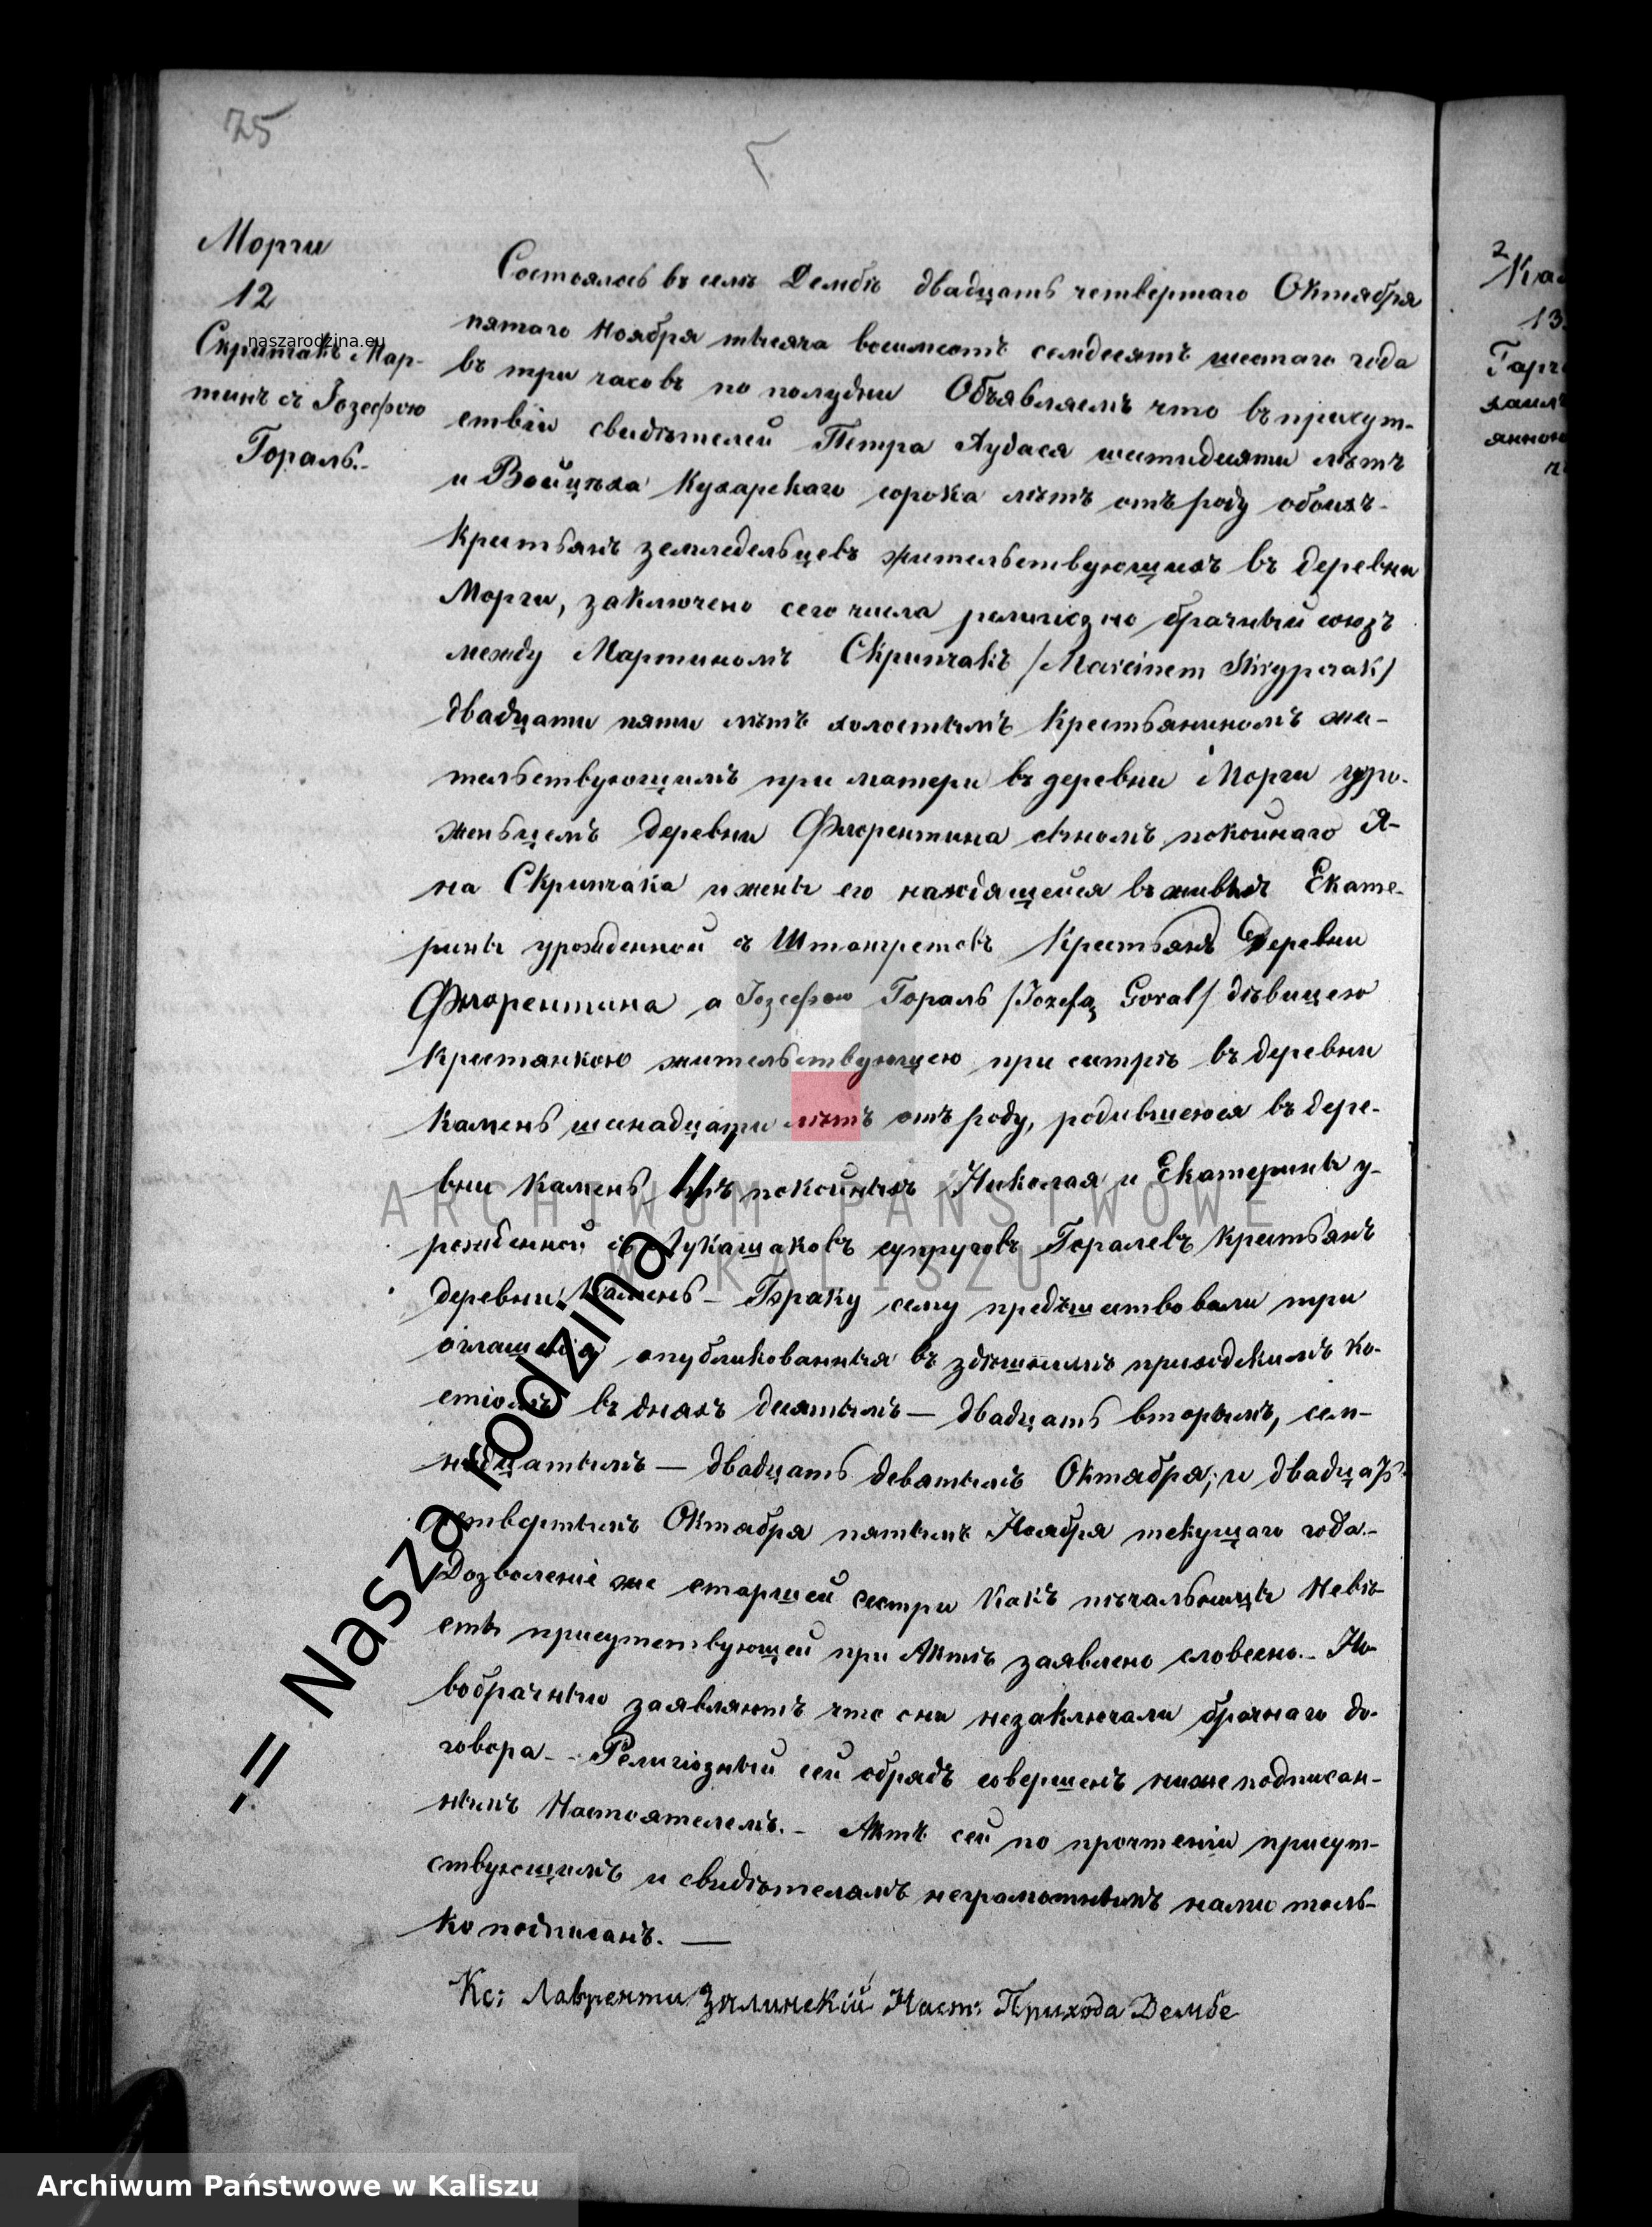 75
Морги
12
Скрипчакъ Мар-
тинъ съ Іозефою
Гораль.-
Состоялось въ селѣ Дембѣ двадцать четвертаго Октября
пятаго Ноября тысяча восимсотъ семдесятъ шестаго года
въ три часовъ по полудни Объявляемъ что въ присут-
ствіи свидѣтелей Петра Дудася шестидесяти лѣтъ
и Войцѣха Кухарскаго сорока лѣтъ отъ роду обоихъ
Крестьянъ земледельцевъ жительствующихъ въ деревни
Морги, заключено сего числа религіозно брачный союзъ
между Мартиномъ Скрипчакъ /Marcinem Skrypczak/
двадцати пяти лѣтъ холостымъ Крестьяниномъ жи-
тельствующимъ при матери въ деревни Морги уро-
женьцемъ деревни Флорентина сыномъ покойнаго Я-
на Скрипчака и жены его находящейся въ живыхъ Екате-
рины урожденной съ Крестьянъ Деревни
Флорентина а Іозефою Гораль /Józefą Goral/ дѣвицею
Крестянкою жительствующею при сестрѣ въ деревни
Камень шеснадцати лѣтъ отъ роду, родившеюся въ дере-
вни Камень отъ покойныхъ Николая и Екатерины у-
рожденной съ Лукашаковъ супруговъ Горалевъ Крестьянъ
деревни Камень - Браку сему предъшествовали три
оглашенія опубликованныя въ здѣшнимъ приходскимъ ко-
стіолѣ въ дняхъ десятымъ — двадцать вторымъ, сем-
надцатымъ — двадцать девятымъ Октября; и двадцать
четвертымъ Октября пятымъ Ноября текущаго года.-
Дозволеніе же старшей сестри Какъ Невѣ-
сты присутствующей при Актѣ заявлено словесно.- Но-
вобрачныю заявляютъ что они незаключали брачнаго до-
говора.- Религіозный сей обрядъ совершенъ нижеподписан-
нымъ Настоятелемъ.- Актъ сей по прочтеніи присут-
ствующимъ и свидѣтелямъ неграмотнымъ нами толь-
ко подписанъ. —
Кс: Лаврентій Зялинскій Наст: Прихода Дембе
2
13
naszarodzina.eu
-= Nasza rodzina =-
ARCHIWUM PAŃSTWOWE
W KALISZU
Archiwum Państwowe w Kaliszu